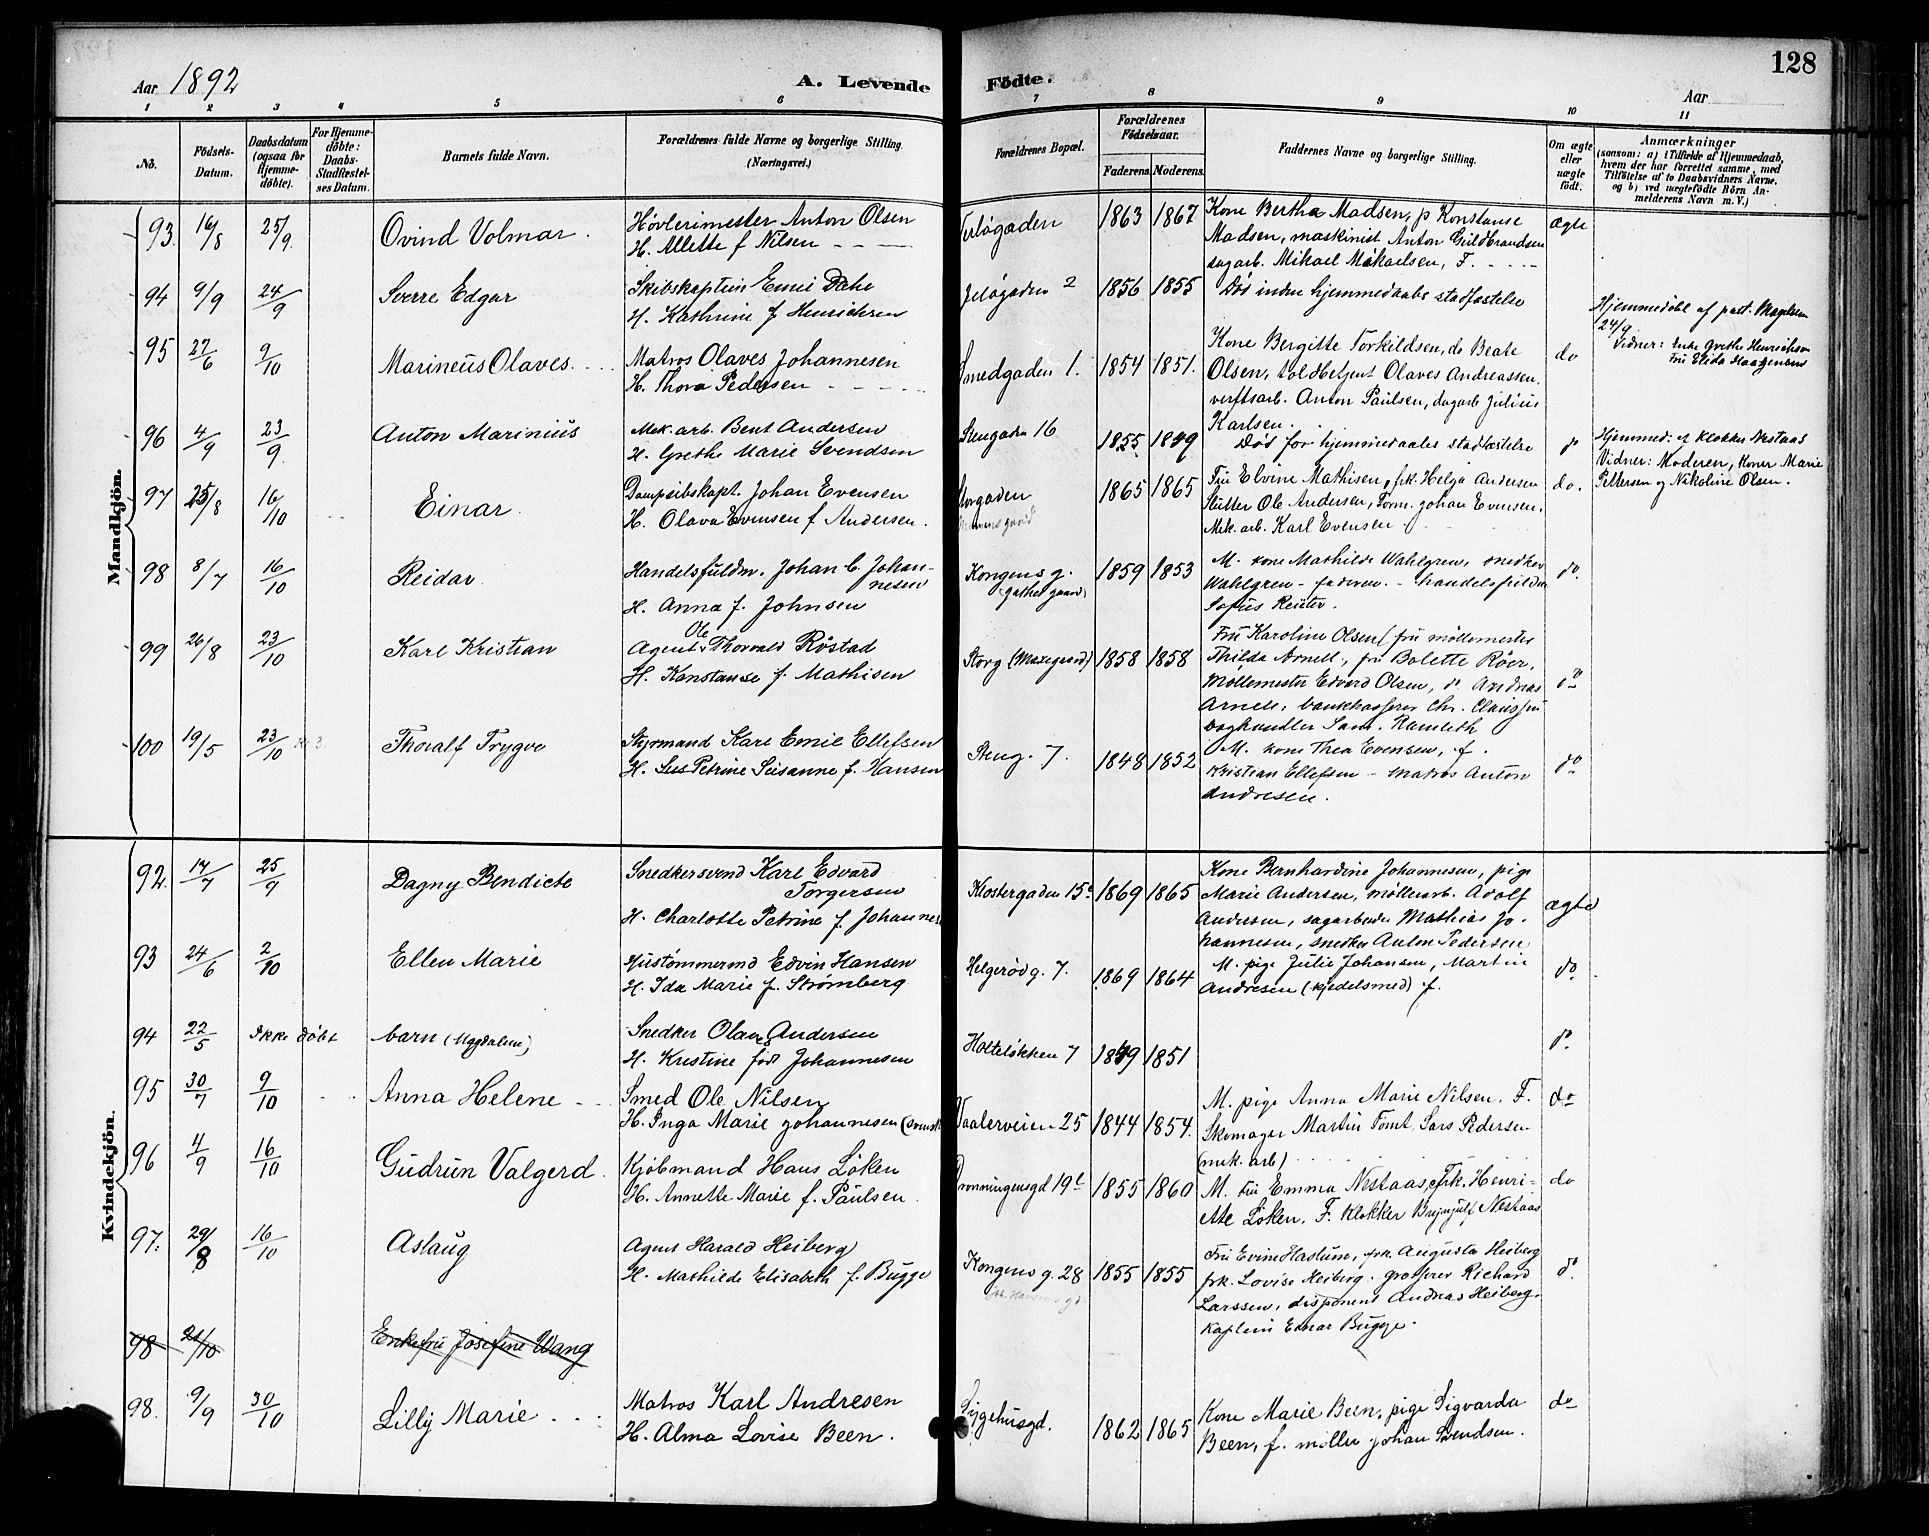 128
Aar 1892
A. Levende Födte.
Aar
1 2 3 4 5 6 7 8 9 10 11
No.
Födsels-Datum.
Daabsdatum (ogsaa for Hjemmedöbte).
For Hjemmedöbte: Daabs-Stadfæstelses Datum.
Barnets fulde Navn.
Forældrenes fulde Navne og borgerlige Stilling. (Næringsvei.)
Forældrenes Bopæl.
Forældrenes Födselsaar.
Faderens. Moderens.
Faddernes Navne og borgerlige Stilling.
Om ægte eller uægte födt.
Anmærkninger
(saasom: a) i Tilfælde af Hjemmedaab,
hvem der har forrettet samme, med
Tilföielse af to Daabsvidners Navne,
og b) ved uægtefödte Börn Anmelderens Navn m. V.)
Mandkjön.
93. 16/8 25/9. Ovind Volmar.
Høvlerimester Anton Olsen
H. Allette f Nilsen
1863 1867
Kone Bertha Madsen, p Konstanse
Madsen, maskinist Anton Guldbrandsen
sagarb. Mikael Mikaelsen, F.
ægte
94 9/9 24/9 Sverre Edgar
Skibskaptein Emil Dahl
H. Kathrine f Henrichsen
Jeløgaden 2 1856 1855
Død inden hjemmedaabs stadfæstelse
Hjemmedøbt af past. Magelssen
24/9
Vidner: Enke Grethe Henrichsen
Fru Elida Haagensen
95 27/6 9/10 Marineus Olaves.
Matros Olaves Johannesen
H. Thora Pedersen
Smedgaden 1. 1854 1851.
Kone Bergitte Torkildsen, do Beate
Olsen, toldbetjent Olaves Andreassen,
verftsarb. Anton Paulsen, dagarb Julius
Karlsen.
do
96 4/9 23/9. Anton Marinius
Mek. arb. Bent Andersen
H. Grethe Marie Svendsen
Stengaden 16 1855 1849
Død før hjemmedaabes stadfæstelse
Hjemmed: af klokker Nestaas
Vidner: Moderen, Koner Marie
Pettersen og Nikoline Olsen.
97 25/8 16/10 Einar.
Dampskibskapt. Johan Evensen
H. Olava Evensen f Andersen.
Storgaden
1865 1865
Fru Elvine Mathisen, frk. Helga Andersen
Slutter Ole Andersen, Form. Johan Evensen,
Mek. arb. Karl Evensen
do.
98 8/7 16/10 Reidar.
Handelsfuldm. Johan C. Johannesen
H. Anna f. Johnsen
Kongens g.
1859 1853
M. kone Mathilde Wahlgren, snedker
Wahlgren - faderen. - handelsfuldm
Sofus Reuter.
do.
99 26/8 23/10 Karl Kristian
Agent Ole Thorvald Röstad
H. Konstanse f. Mathisen
Storg (Maxegaard) 1858 1858
Fru Karoline Olsen (fru møllemester
Thilda Arnell, fru Bolette Röer,
Møllemester Edvard Olsen, do. Andreas
Arnell, bankkasserer Chr. Claussen
boghandler Sam. Ramleth
do
100 19/5 23/10 Thoralf Trygve
Styrmand Karl Emil Ellefsen
H. Lus Petrine Susanne f. Hansen
Steng. 7. 1848 1852
M. kone Thea Evensen, f.
Kristian Ellefsen - Matros Anton
Andresen.
do
Kvindekjön.
92. 17/7 25/9 Dagny Bendicte
Snedkersvend Karl Edvard
Torgersen
H. Charlotte Petrine f Johannes
Klostergaden 15 1869 1865
Kone Bernhardine Johannesen, pige
Marie Andersen, møllearb. Adolf
Andersen, sagarbeider Mathias Johannesen, snedker Anton Pedersen
ægte
93 24/6 2/10 Ellen Marie
Hustømmermd Edvin Hansen
H. Ida Marie f. Strømberg
Helgerød g. 7. 1869 1864
M. pige Julie Johansen, Martin
Andresen (kjedelsmed) f.
do.
94 22/5 Ikke døbt barn (Magdalene)
Snedker Olaves Andersen
H. Kristine født Johannesen
Holteløkken 7 1849 1851
95 30/7 9/10 Anna Helene
Smed Ole Nilsen
H. Inga Marie Johannesen (svensk
Vaalerveien 25 1844 1854.
M. pige Anna Marie Nilsen. F.
Skomager Martin Tomt, Lars Pedersen
(mek. arb)
do
96 4/9 16/10 Gudrun Valgerd.
Kjøbmand Hans Løken
H. Annette Marie f. Paulsen.
Dronningensgd 19 1855 1860
M. Fru Emma Nestaas, frk. Henriette Løken. F. Klokker Brynjulf Nestaas
do
97. 29/8 16/10 Aslaug
Agent Harald Heiberg
H. Mathilde Elisabeth f. Bugge
Kongens g. 28 1855 1855
Fru Evine Haslum, frk. Augusta Heiberg
frk. Lovise Heiberg. grosserer Richard
Larssen, disponent Andreas Heiberg.
Kaptein Einar Bugge.
98 21/10 Enkefru Josefine Wang
98. 9/9 30/10 Lilly Marie
Matros Karl Andresen
H. Alma Lovise Been.
Sygehusgd. 1862 1865
Kone Marie Been, pige Sigvarda
Been, f. møller Johan Svendsen.
do